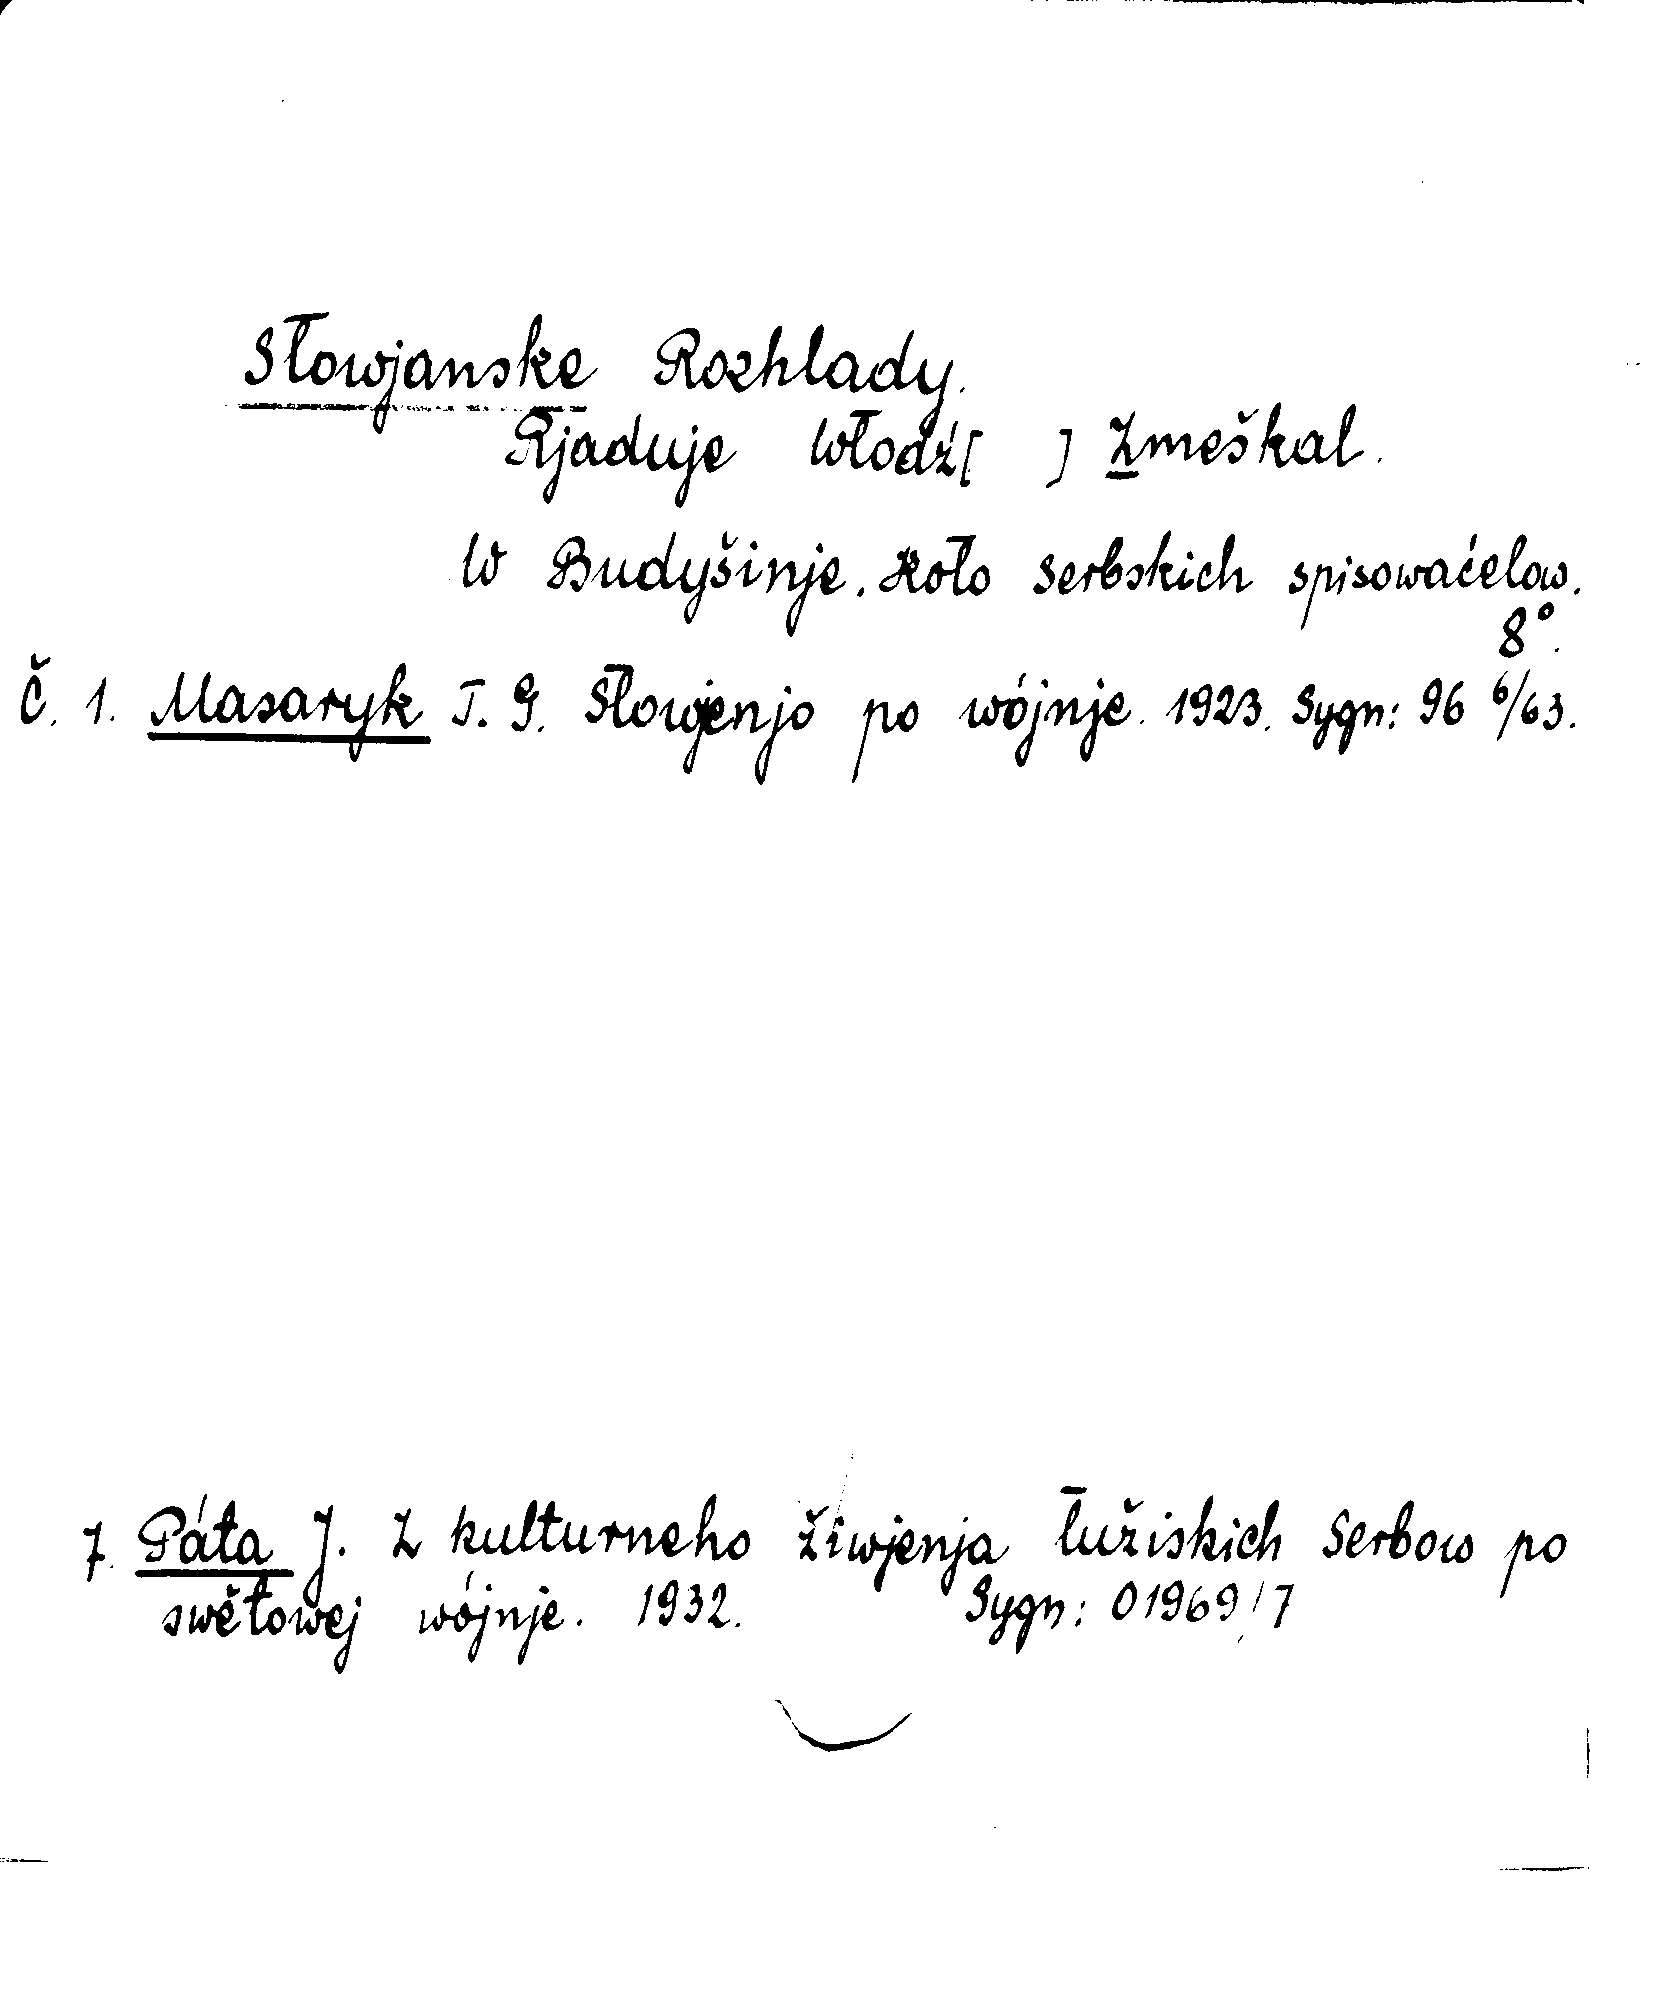 Słowjanske Rozhlady.
Rjaduje Włodź[ ] Zmeškal.
W Budyšinje. Koło serbskich spisowaćelow.
8°.
Č. 1. Masaryk T. G. Słowjenjo po wójnje. 1923. Sygn: 96 6/63.
7. Páta J. Z kulturneho žiwjenja łužiskich Serbow po
swětowej wójnje. 1932. Sygn: 01969/7